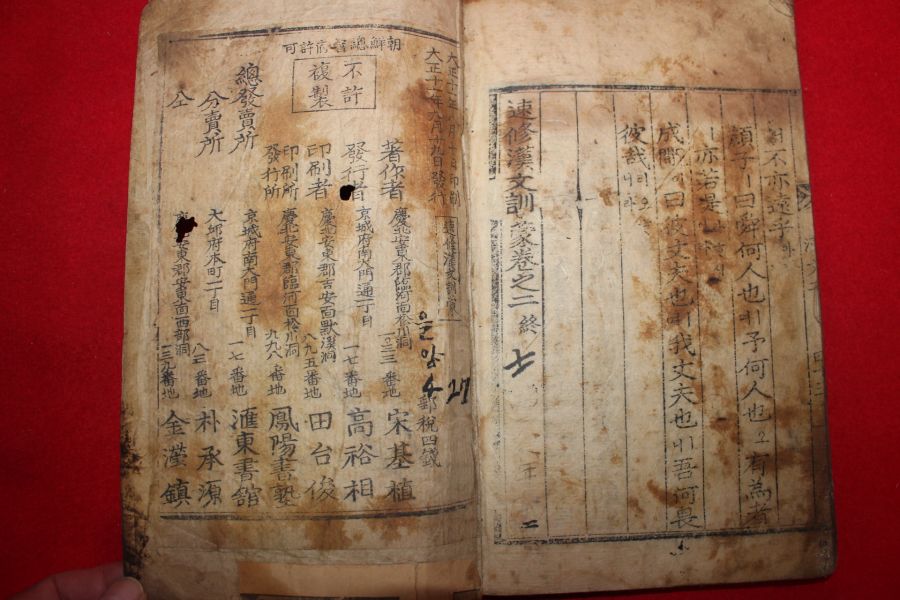 不亦遠乎
顔子ㅣ曰舜何人也ㅣ予何人也오有為者
ㅣ亦若是
成覵이曰彼丈夫也ㅣ我丈夫也ㅣ吾何畏
彼哉리오
速修漢文訓蒙卷之二 終
七
朝鮮總督府許可
大正十一年 印刷
大正十一年六月十九日發行
速修漢文訓蒙
郵稅四錢
27
不許
複製
著作者 慶北安東郡臨河面松川洞 宋基植
發行者 京城府南大門通一丁目 一七番地 高裕相
印刷者 慶北安東郡吉安面默溪洞 八九五番地 田台俊
印刷所
發行所 慶北安東郡臨河面松川洞 九九八番地 鳳陽書塾
總發賣所 京城府南大門通一丁目 一七番地 滙東書舘
分賣所 大邱府本町二丁目 八三番地 朴承源
仝 安東郡安東面西部洞 一三九番地 金漢鎮